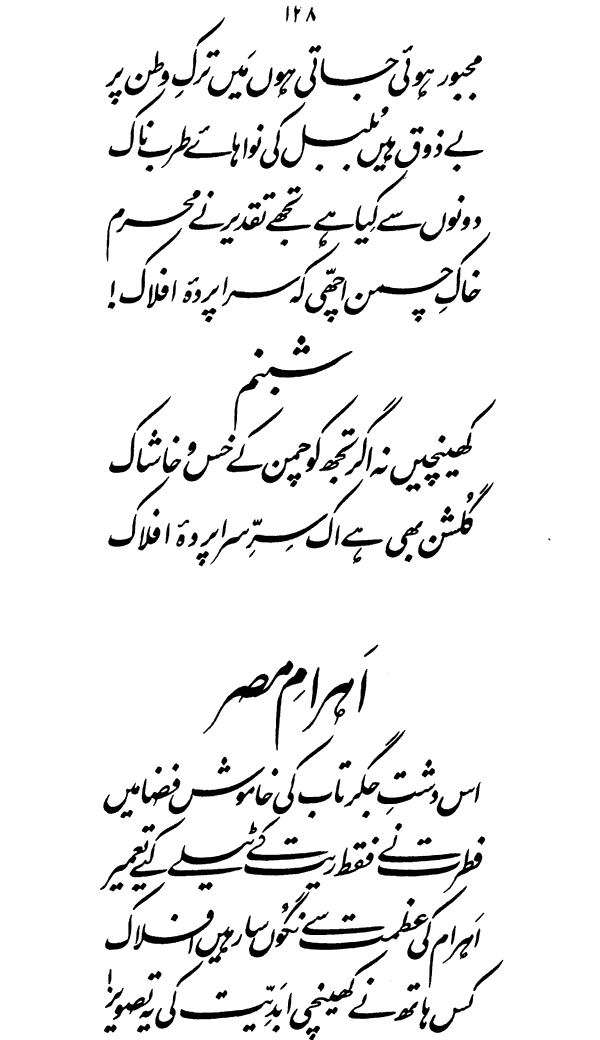 ۱۲۸
مجبور ہوئی جاتی ہوں مَیں ترکِ وطن پر
بے ذوق ہیں بُلبل کی نوا ہائے طرب ناک
دونوں سے کِیا ہے تجھے تقدیر نے محرم
خاکِ چمن اچھّی کہ سرا پردۂ افلاک!
شبنم
کھینچیں نہ اگر تجھ کو چمن کے خس و خاشاک
گُلشن بھی ہے اک سرِّ سرا پردۂ افلاک
اَہرامِ مصر
اس دشتِ جگر تاب کی خاموش فضا میں
فطرت نے فقط ریت کے ٹیلے کیے تعمیر
اَہرام کی عظمت سے نگُوں سار ہیں افلاک
کس ہاتھ نے کھینچی ابَدِیّت کی یہ تصویر!